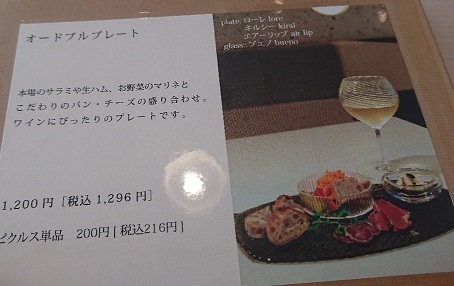 オードブルプレート
本場のサラミや生ハム、お野菜のマリネと
こだわりのパン・チーズの盛り合わせ。
ワインにぴったりのプレートです。
1,200円［税込1,296円］
ピクルス単品 200円[税込216円]
plate: ローレ lore
キルシー kirsi
エアーリップ air lip
glass: ブエノ bueno